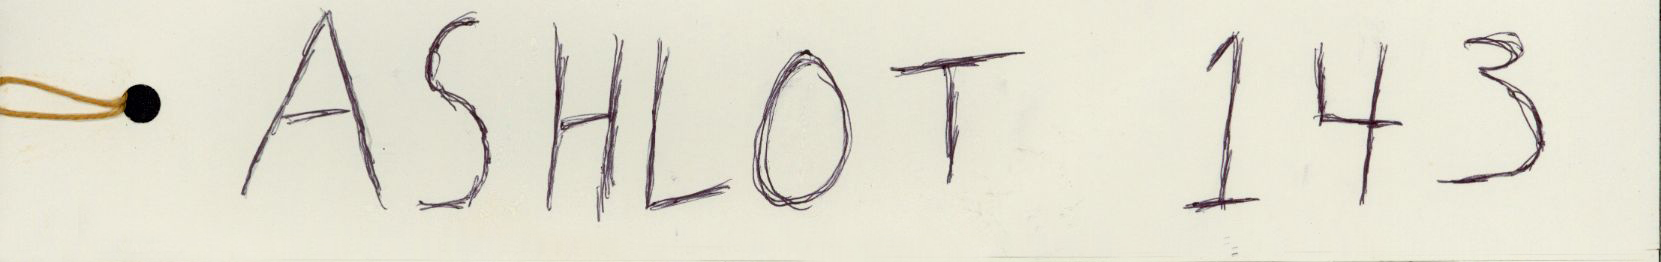 ASHLOT 143